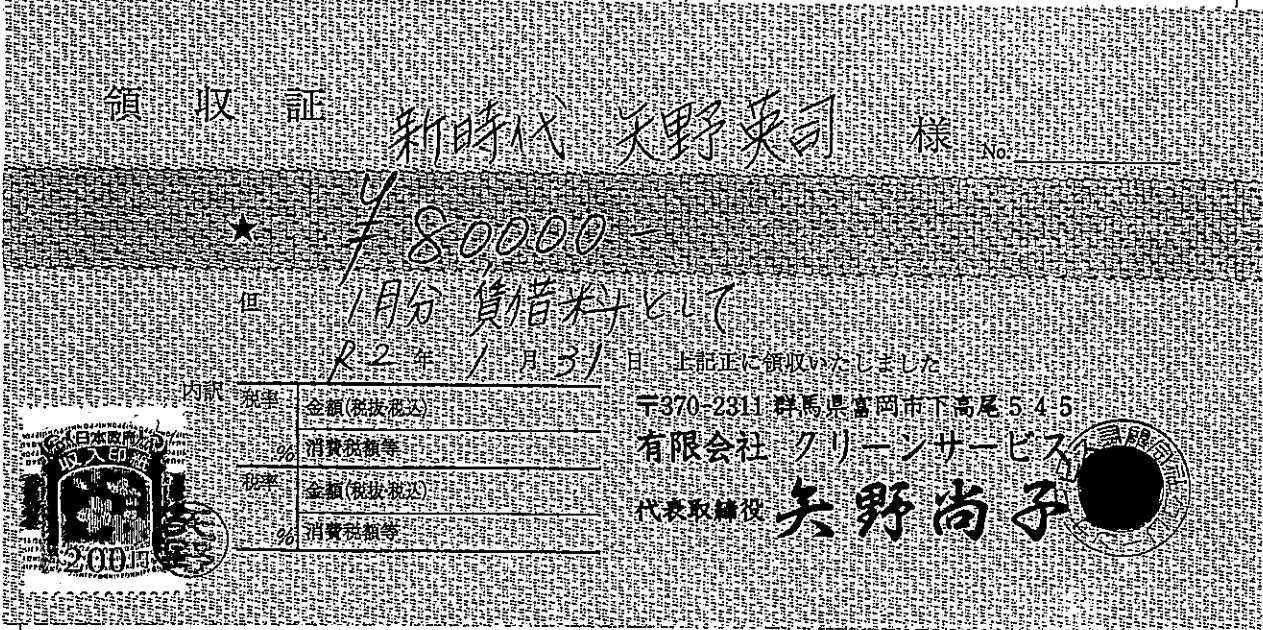 領収証
新時代 矢野英司 様 No.
★ ¥80,000-
但 1月分 賃借料として
R2年 1月31日 上記正に領収いたしました
内訳
税率 金額(税抜・税込)
% 消費税額等
税率 金額(税抜・税込)
% 消費税額等
〒370-2311 群馬県富岡市下高尾545
有限会社 クリーンサービス
代表取締役 矢野尚子
日本政府
収入印紙
200円